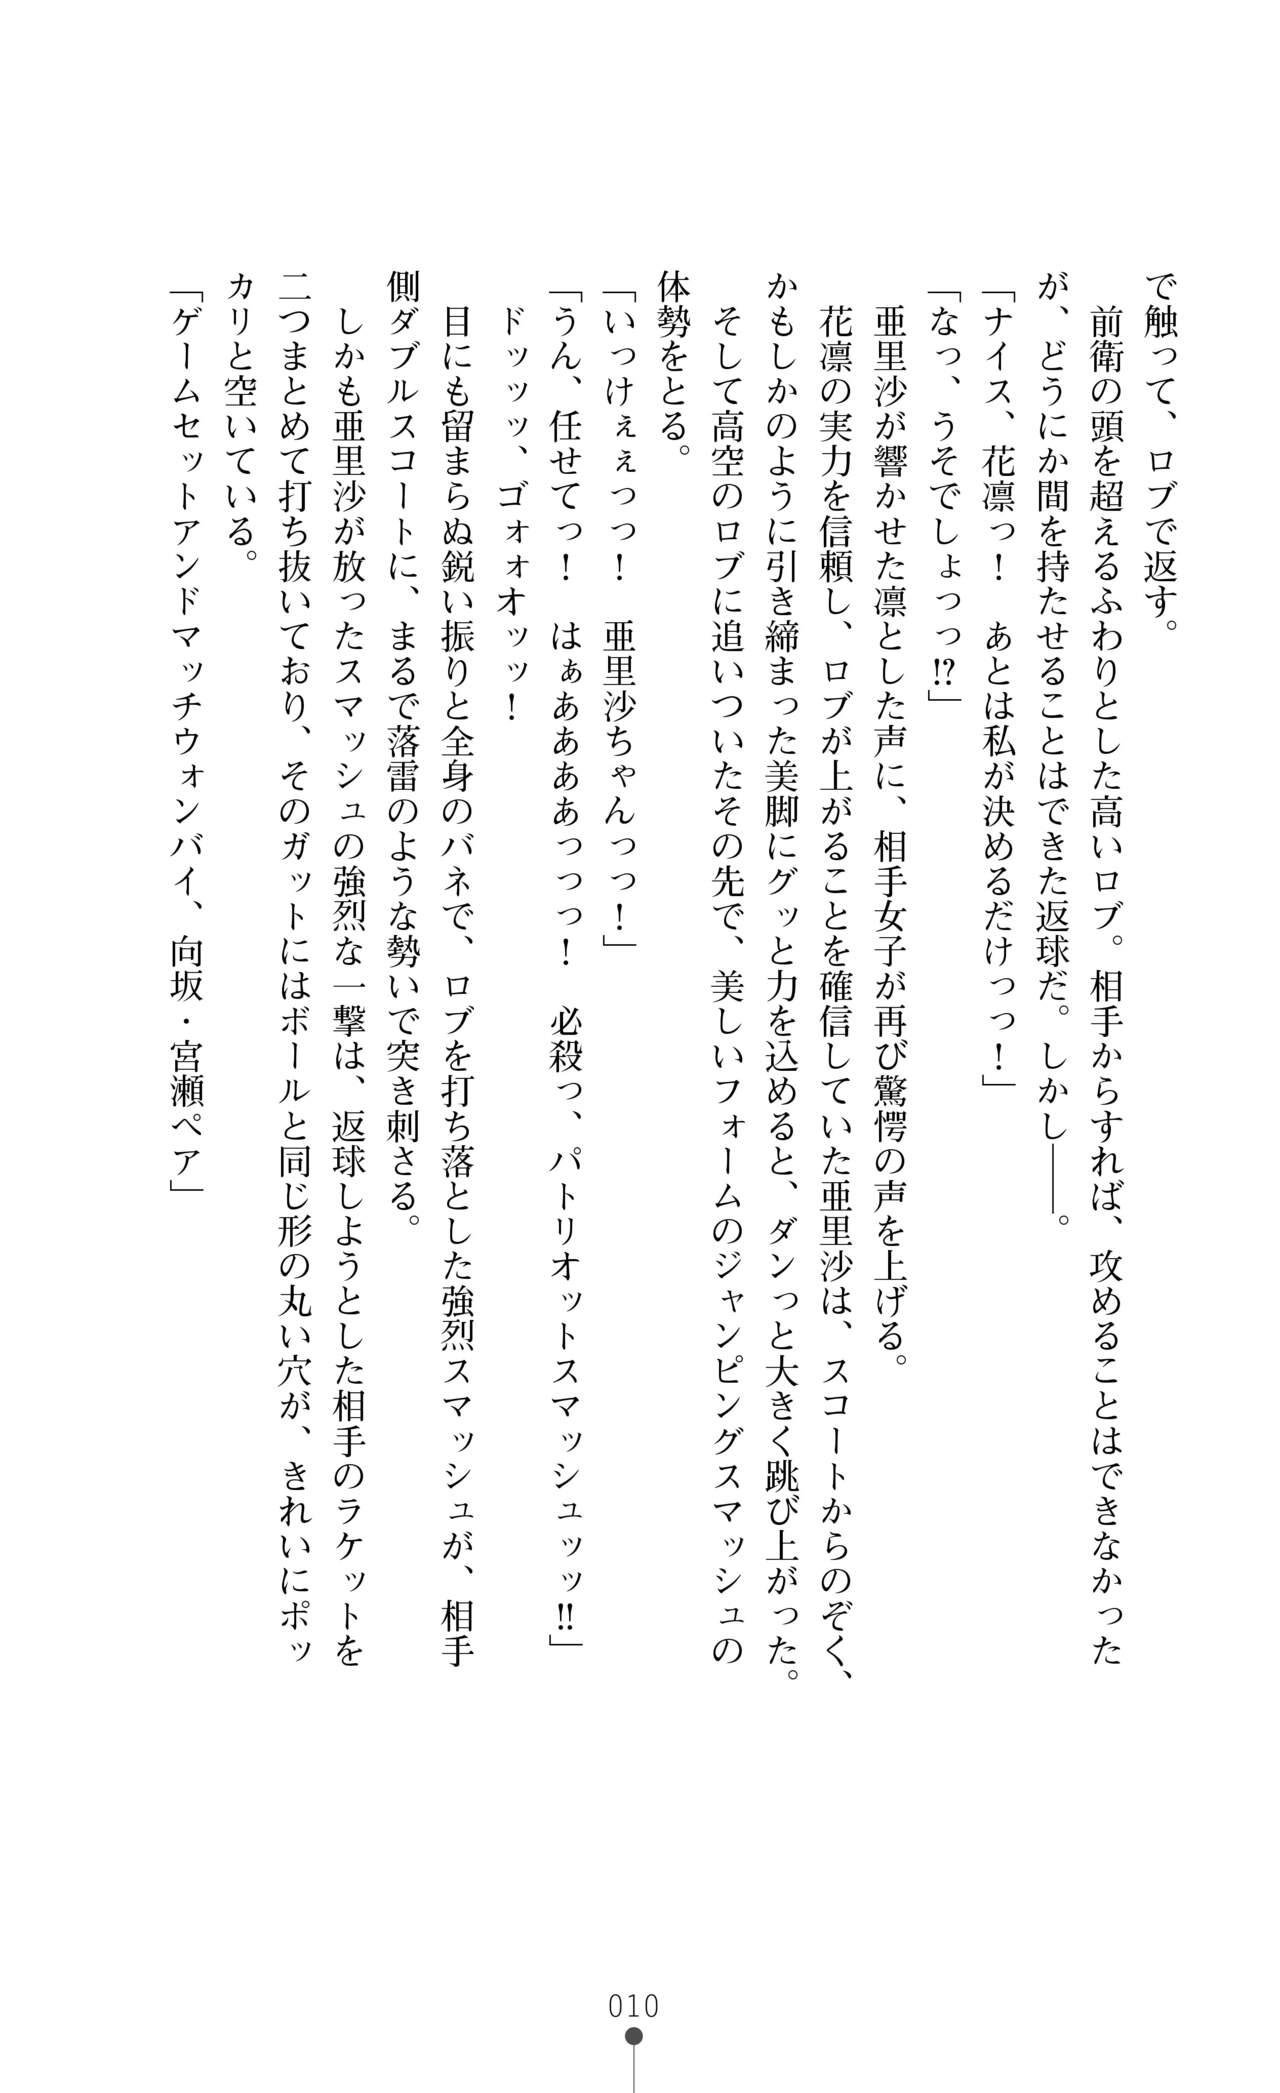 で触って、ロブで返す。
　前衛の頭を超えるふわりとした高いロブ。相手からすれば、攻めることはできなかった
が、どうにか間を持たせることはできた返球だ。しかし――。
「ナイス、花凛っ！　あとは私が決めるだけっっ！」
「なっ、うそでしょっっ!?」
　亜里沙が響かせた凛とした声に、相手女子が再び驚愕の声を上げる。
　花凛の実力を信頼し、ロブが上がることを確信していた亜里沙は、スコートからのぞく、
かもしかのように引き締まった美脚にグッと力を込めると、ダンっと大きく跳び上がった。
　そして高空のロブに追いついたその先で、美しいフォームのジャンピングスマッシュの
体勢をとる。
「いっけぇぇっっ！　亜里沙ちゃんっっ！」
「うん、任せてっ！　はぁああああっっっ！　必殺っ、パトリオットスマッシュッッ!!」
　ドッッッ、ゴォォオッッ！
　目にも留まらぬ鋭い振りと全身のバネで、ロブを打ち落とした強烈スマッシュが、相手
側ダブルスコートに、まるで落雷のような勢いで突き刺さる。
　しかも亜里沙が放ったスマッシュの強烈な一撃は、返球しようとした相手のラケットを
二つまとめて打ち抜いており、そのガットにはボールと同じ形の丸い穴が、きれいにポッ
カリと空いている。
「ゲームセットアンドマッチウォンバイ、向坂・宮瀬ペア」
010